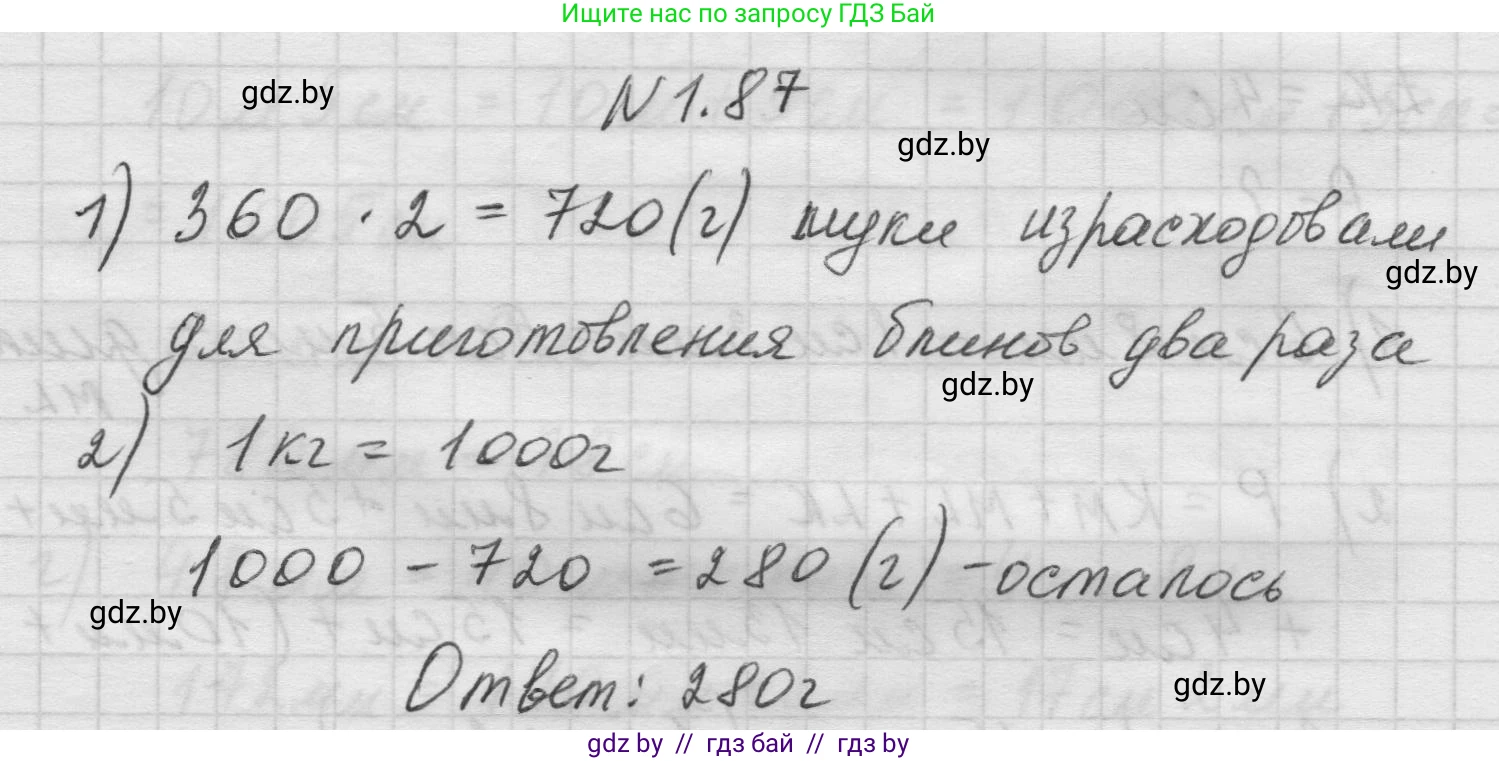 Ищите нас по запросу ГДЗ Бай
gdz.by
N 1.87
gdz.by
1) 360 · 2 = 720(г) муки израсходовали
gdz.by
для приготовления блинов два раза
gdz.by
2) 1кг = 1000г
1000 - 720 = 280 (г) - осталось
gdz.by
Ответ: 280г
gdz.by
gdz by // гдз бай // гдз by